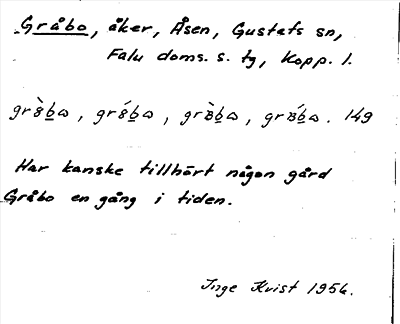 Gråbo, åker, Åsen, Gustafs sn,
Falu doms. s. tg, Kopp. l.
149
Har kanske tillhört någon gård
Gråbo en gång i tiden.
Inge Kvist 1954.